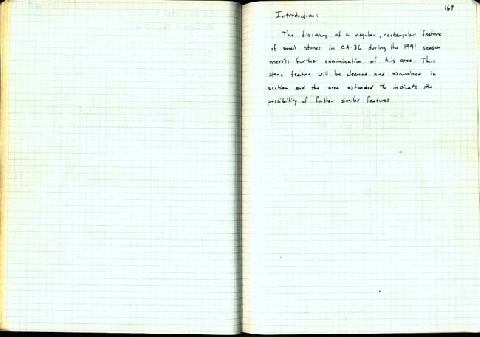 168
Introduction:
The discovery of a regular, rectangular feature
of small stones in CA-36 during the 1991 season
merits further examination of this area. This
stone feature will be cleaned and examined in
section and the area extended to indicate the
possibility of further similar features